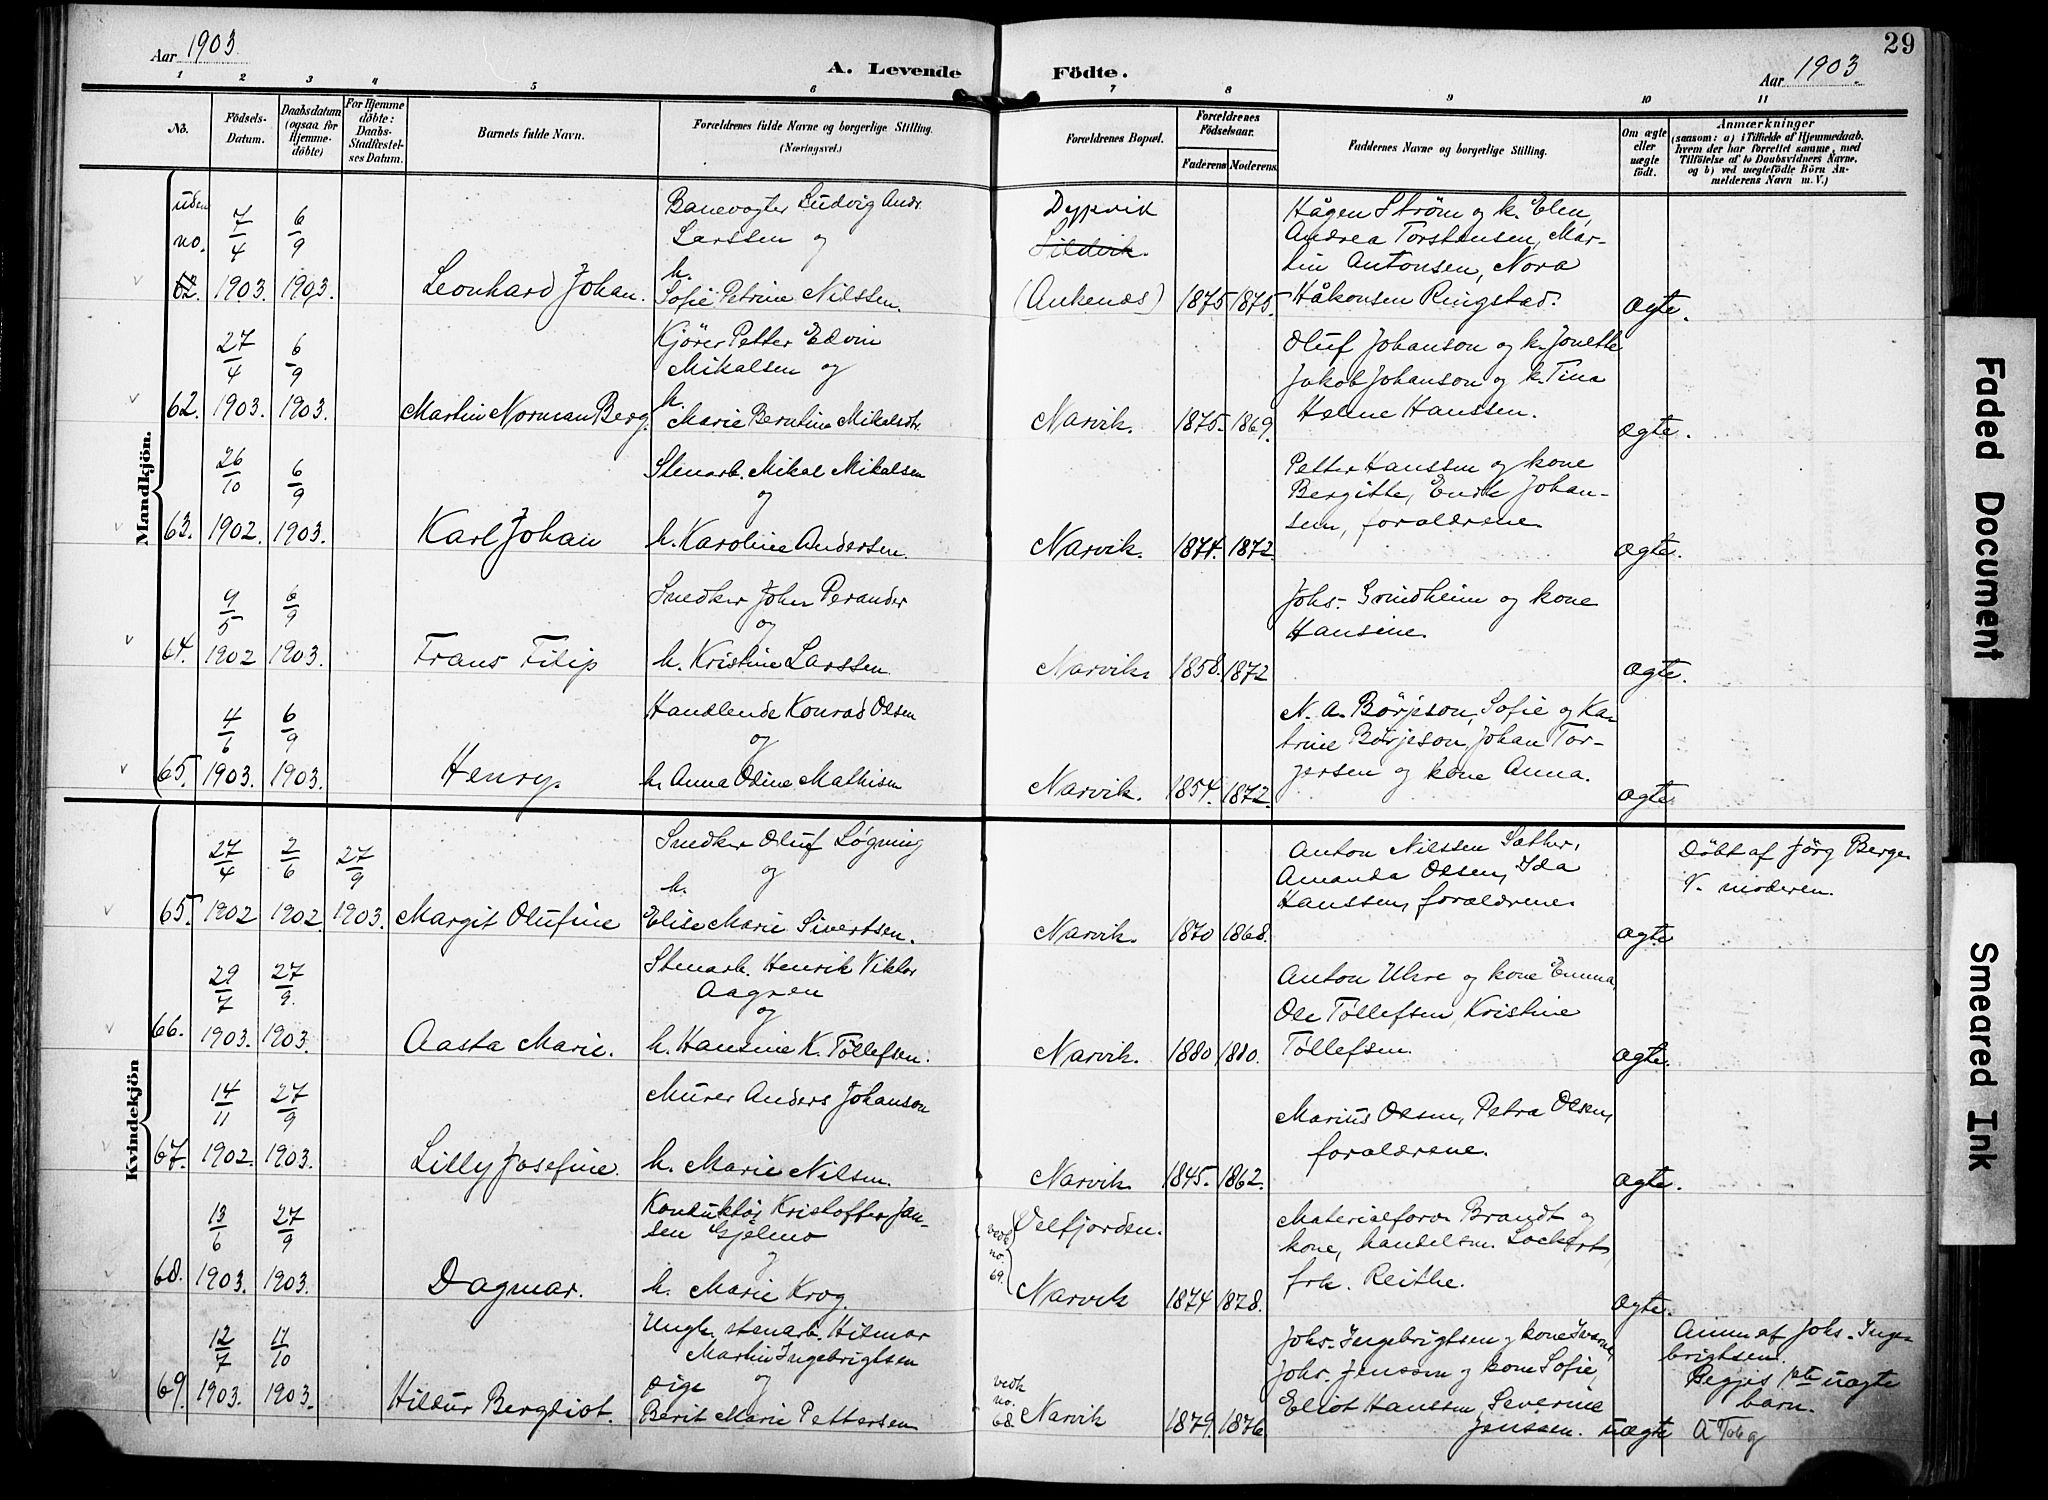 29
Aar 1903.
A. Levende Födte.
Aar 1903.
1 2 3 4 5 6 7 8 9 10 11
No.
Födsels-
Datum.
Daabsdatum
(ogsaa for
Hjemme-
döbte)
For Hjemme
döbte:
Daabs-
Stadfæstel-
ses Datum.
Barnets fulde Navn.
Forældrenes fulde Navne og borgerlige Stilling.
(Næringsvei.)
Forældrenes Bopæl.
Forældrenes
Födselsaar.
Faderens Moderens.
Faddernes Navne og borgerlige Stilling.
Om ægte
eller
uægte
födt.
Anmærkninger
(saasom: a) i Tilfælde af Hjemmedaab,
hvem der har forrettet samme, med
Tilföielse af to Daabsvidners Navne,
og b) ved uægtefödte Börn An-
melderens Navn m. V.)
Mandkjön.
uden
no.
62.
7/4
1903.
6/9
1903.
Leonhard Johan.
Banevogter Ludvig Andr.
Larssen og
h.
Sofie Petrine Nilssen.
Dypvik
Sildvik.
(Ankenæs)
1875 1875.
Hågen Strøm og k. Elen,
Andrea Torstensen, Mar-
tin Antonsen, Nora
Håkonsen Ringstad.
ægte.
62.
27/4
1903.
6/9
1903.
Martin Norman Berg.
Kjører Petter Edvin
Mikalsen og
h.
Marie Berntine Mikalsdtr.
Narvik.
1875. 1869.
Oluf Johanson og k. Jonette
Jakob Johanson og k. Tina
Helene Hanssen.
ægte.
63.
26/10
1902.
6/9
1903.
Karl Johan
Stenarb. Mikal Mikalsen
og
h. Karoline Andersen.
Narvik.
1874. 1872.
Petter Hanssen og kone
Bergitte, Johan-
sen, forældrene.
ægte.
64.
4/5
1902
6/9
1903.
Frans Filip
Snedker John Perander
og
h. Kristine Larssen.
Narvik.
1858. 1872
Johs. Grindheim og kone
Hansine.
ægte.
65.
4/6
1903.
6/9
1903.
Henry.
Handlende Konrad Olsen
og
h. Anna Odine Mathisen
Narvik.
1854. 1872.
N. A. Børjeson, Sofie og Ka-
trine Børjeson, Johan Tor-
jersen og kone Anna.
ægte.
Kvindekjön
65.
27/4
1902
2/6
1902
27/9
1903.
Margit Olufine
Snedker Oluf Løgning
og
h.
Elise Marie Sivertsen.
Narvik.
1870 1868.
Anton Nilssen Sæther,
Amanda Olsen, Ida
Hanssen, forældrene.
ægte
Döbt af Jörg. Berge
V. moderen.
66.
29/7
1903.
27/9
1903.
Aasta Marie.
Stenarb. Henrik Viktor
Aagren
og
h. Hansine K. Töllefsen.
Narvik.
1880 1880.
Anton Uhre og kone Emma,
Ole Töllefsen, Kristine
Töllefsen.
ægte.
67.
14/11
1902.
27/9
1903.
Lilly Josefine.
Murer Anders Johanson
h. Marie Nilsen.
Narvik.
1845. 1862.
Marius Olsen, Petra Olsen,
forældrene.
ægte.
68.
13/6
1903.
27/9
1903.
Dagmar.
Konduktör Kristoffer Jan-
sen Gjelmo
og
h. Marie Krog.
Velfjorden.
(vedk.
no.
69.
Narvik
1874 1878.
Materialforv. Brandt og
kone, handelsm. Lockert,
frk. Reithe.
ægte.
69.
12/7
1903.
11/10
1903.
Hildur Bergliot.
Ungk. stenarb. Hilmar
Martin Ingebrigtsen
pige og
Berit Marie Pettersen
vedk
no.
68
Narvik
1879. 1876.
Johs. Ingebrigtsen og kone
Johs. Jenssen og kone Sofie,
Eliot Hanssen, Severine
Jenssen.
uægte
Anm. af Johs. Inge-
brigtsen.
Begges 1ste uægte
barn.
Faded Document
Smeared Ink